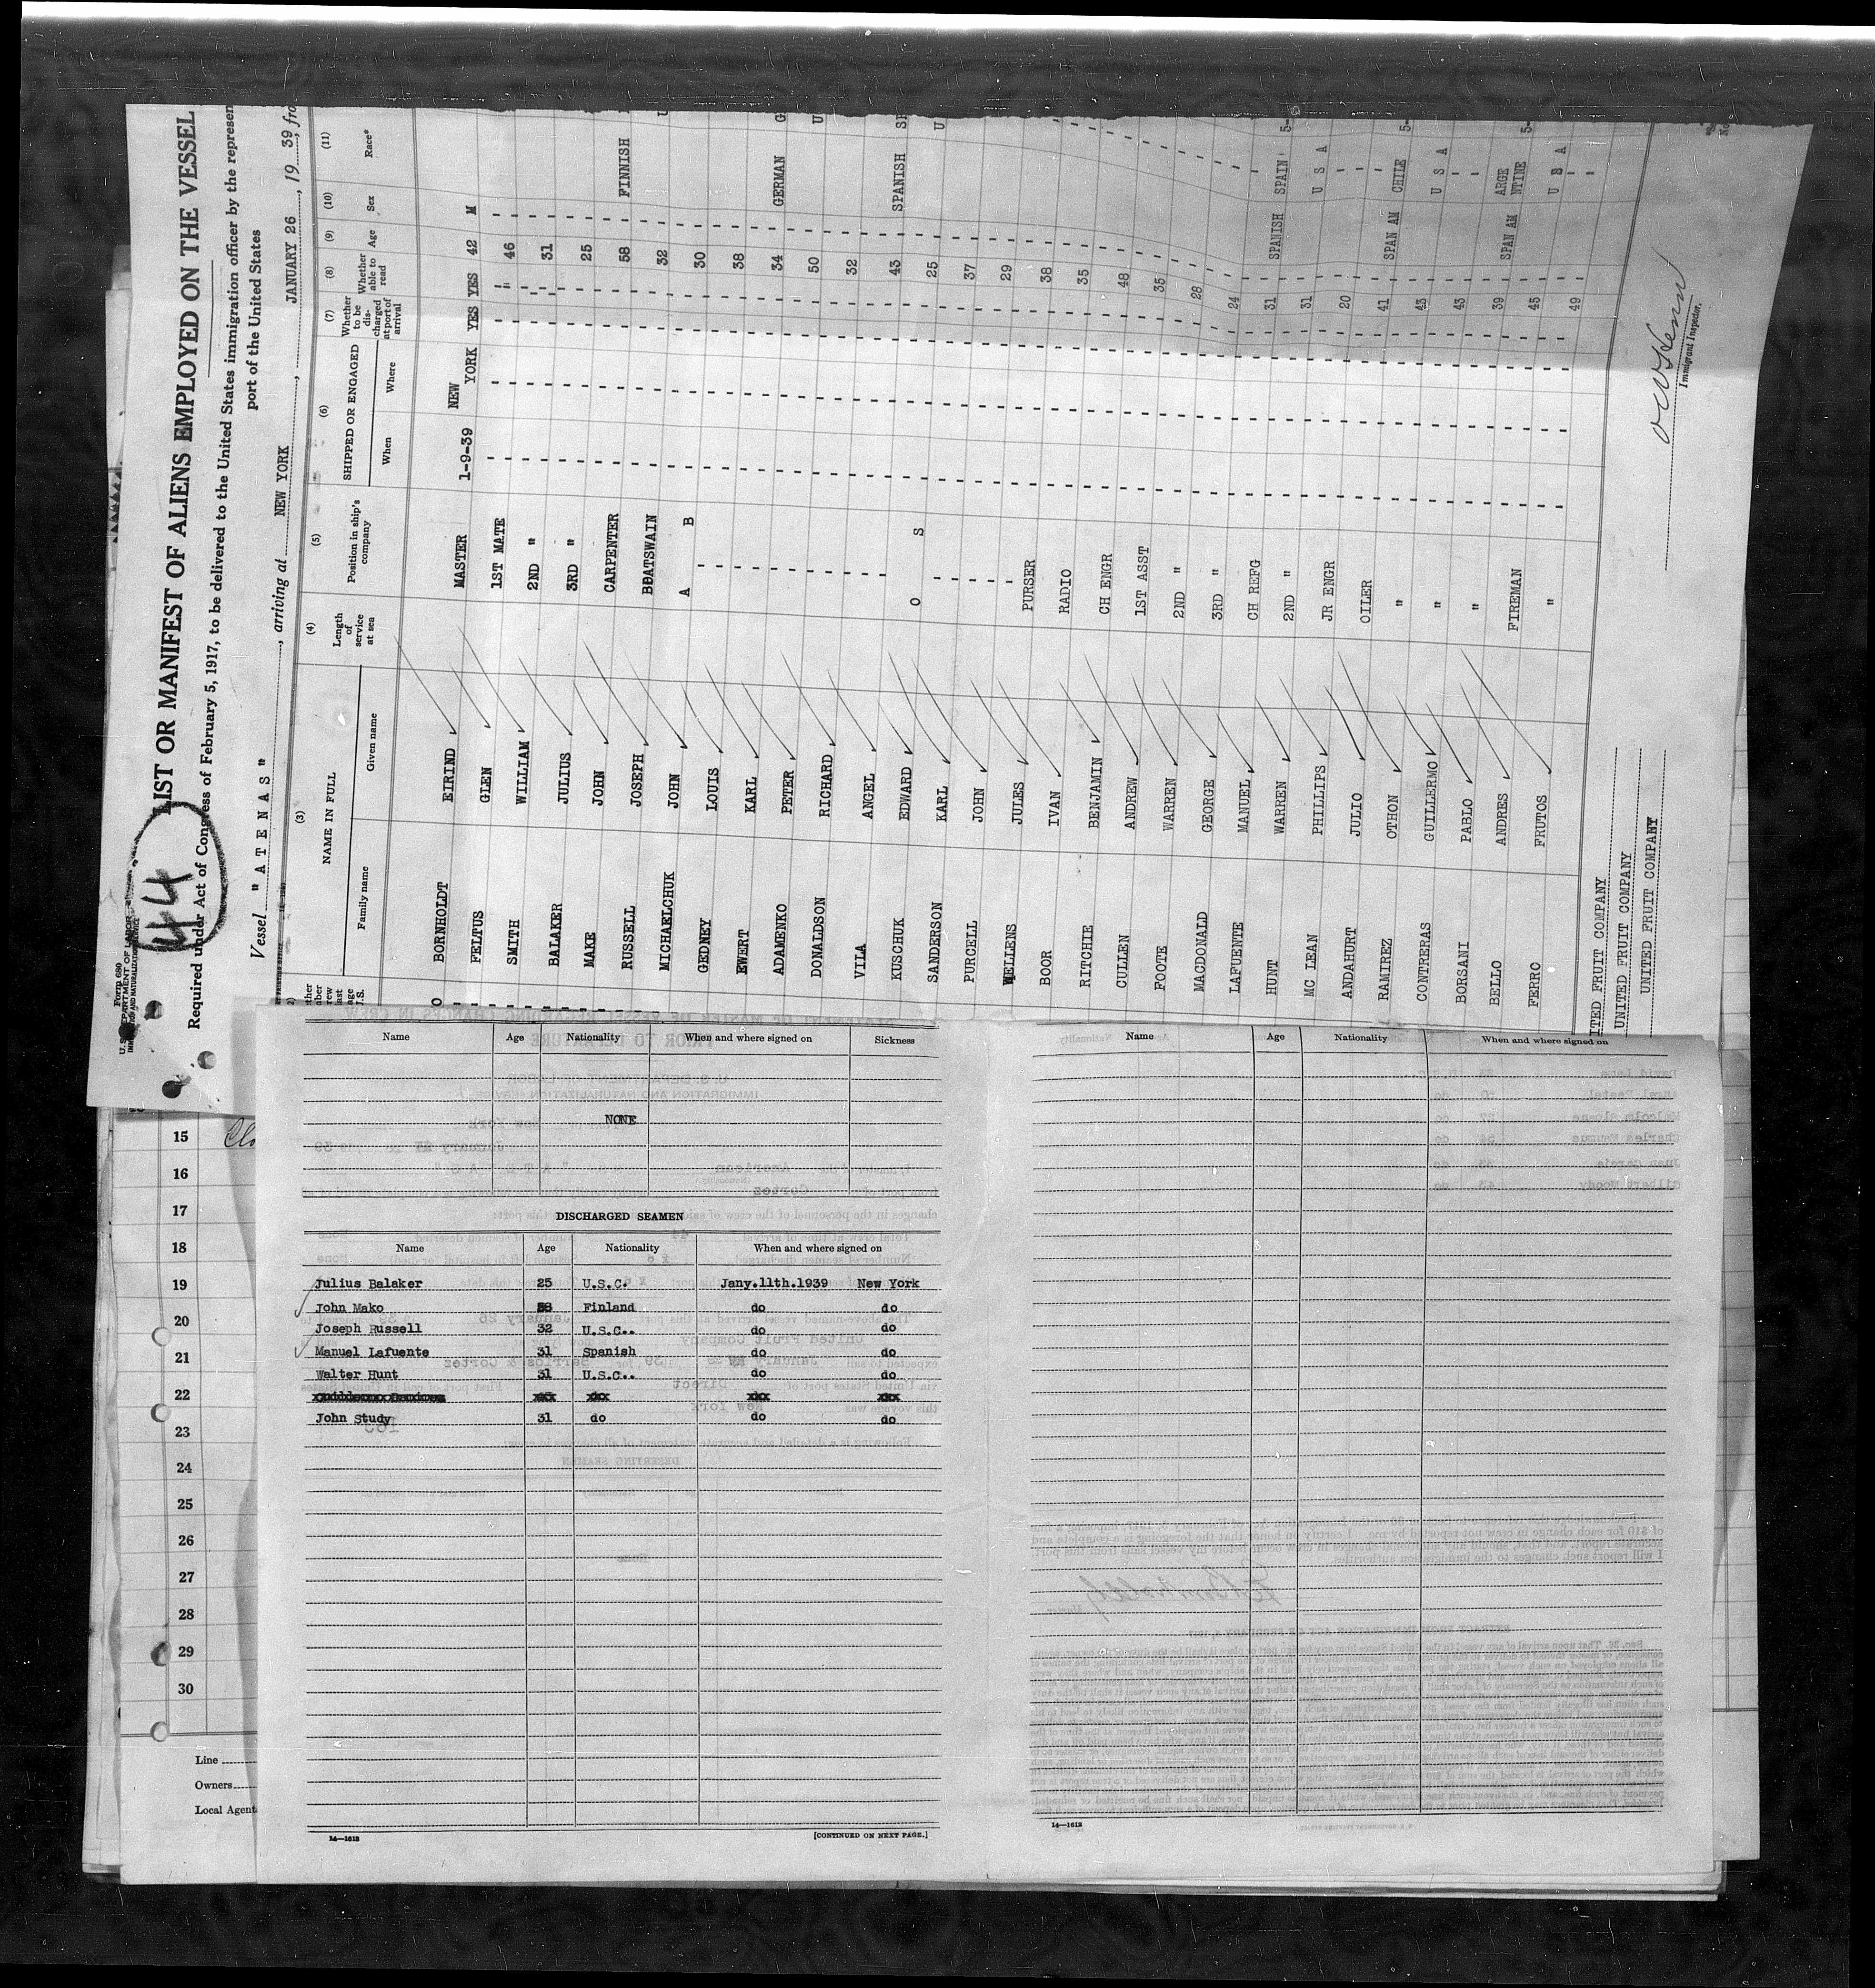 Form 680
U. S. DEPARTMENT OF LABOR
IMMIGRATION AND NATURALIZATION SERVICE
44
LIST OR MANIFEST OF ALIENS EMPLOYED ON THE VESSEL
Required under Act of Congress of February 5, 1917, to be delivered to the United States immigration officer by the represen
port of the United States
Vessel " A T E N A S " , arriving at NEW YORK , JANUARY 26 , 19 39, fro
(3) (4) (5) (6) (7) (8) (9) (10) (11)
NAME IN FULL Length of service at sea Position in ship's company SHIPPED OR ENGAGED Whether to be discharged at port of arrival Whether able to read Age Sex Race*
Family name Given name When Where
BORNHOLDT EIRIND MASTER 1-9-39 NEW YORK YES YES 42 M
FELTUS GLEN 1ST MATE 46
SMITH WILLIAM 2ND " 31
BALAKER JULIUS 3RD " 25
MAKE JOHN CARPENTER 58 FINNISH
RUSSELL JOSEPH BBATSWAIN 32 U
MICHAELCHUK JOHN A B 30
GEDNEY LOUIS - 38
EWERT KARL - 34 GERMAN G
ADAMENKO PETER - 50 U
DONALDSON RICHARD - 32
VILA ANGEL - 43 SPANISH SP
KUSCHUK EDWARD O S 25 U
SANDERSON KARL - 37
PURCELL JOHN - 29
WELLENS JULES PURSER 38
BOOR IVAN RADIO 35
RITCHIE BENJAMIN CH ENGR 48
CULLEN ANDREW 1ST ASST 35
FOOTE WARREN 2ND " 28
MACDONALD GEORGE 3RD " 24
LAFUENTE MANUEL CH REFG 31 SPANISH SPAIN 5-
HUNT WARREN 2ND " 31 U S A
MC LEAN PHILLIPS JR ENGR 20
ANDAHURT JULIO OILER 41 SPAN AM CHILE 5-
RAMIREZ OTHON " 43 U S A
CONTRERAS GUILLERMO " 43
BORSANI PABLO " 39 SPAN AM ARGE NTINE 5-
BELLO ANDRES FIREMAN 45 U S A
FERRO FRUTOS " 49
ITED FRUIT COMPANY
UNITED FRUIT COMPANY
UNITED FRUIT COMPANY
Immigrant Inspector.
15
16
17
18
19
20
21
22
23
24
25
26
27
28
29
30
Line
Owners
Local Agent
Name Age Nationality When and where signed on Sickness
NONE
DISCHARGED SEAMEN
Name Age Nationality When and where signed on
Julius Balaker 25 U.S.C. Jany.11th.1939 New York
John Mako 58 Finland do do
Joseph Russell 32 U.S.C.. do do
Manuel Lafuente 31 Spanish do do
Walter Hunt 31 U.S.C.. do do
John Study 31 do do do
14—1613
[CONTINUED ON NEXT PAGE.]
Name Age Nationality When and where signed on
14—1613